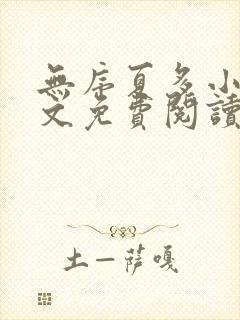 無序夏多小
文免費閱讀
土一薩嘎